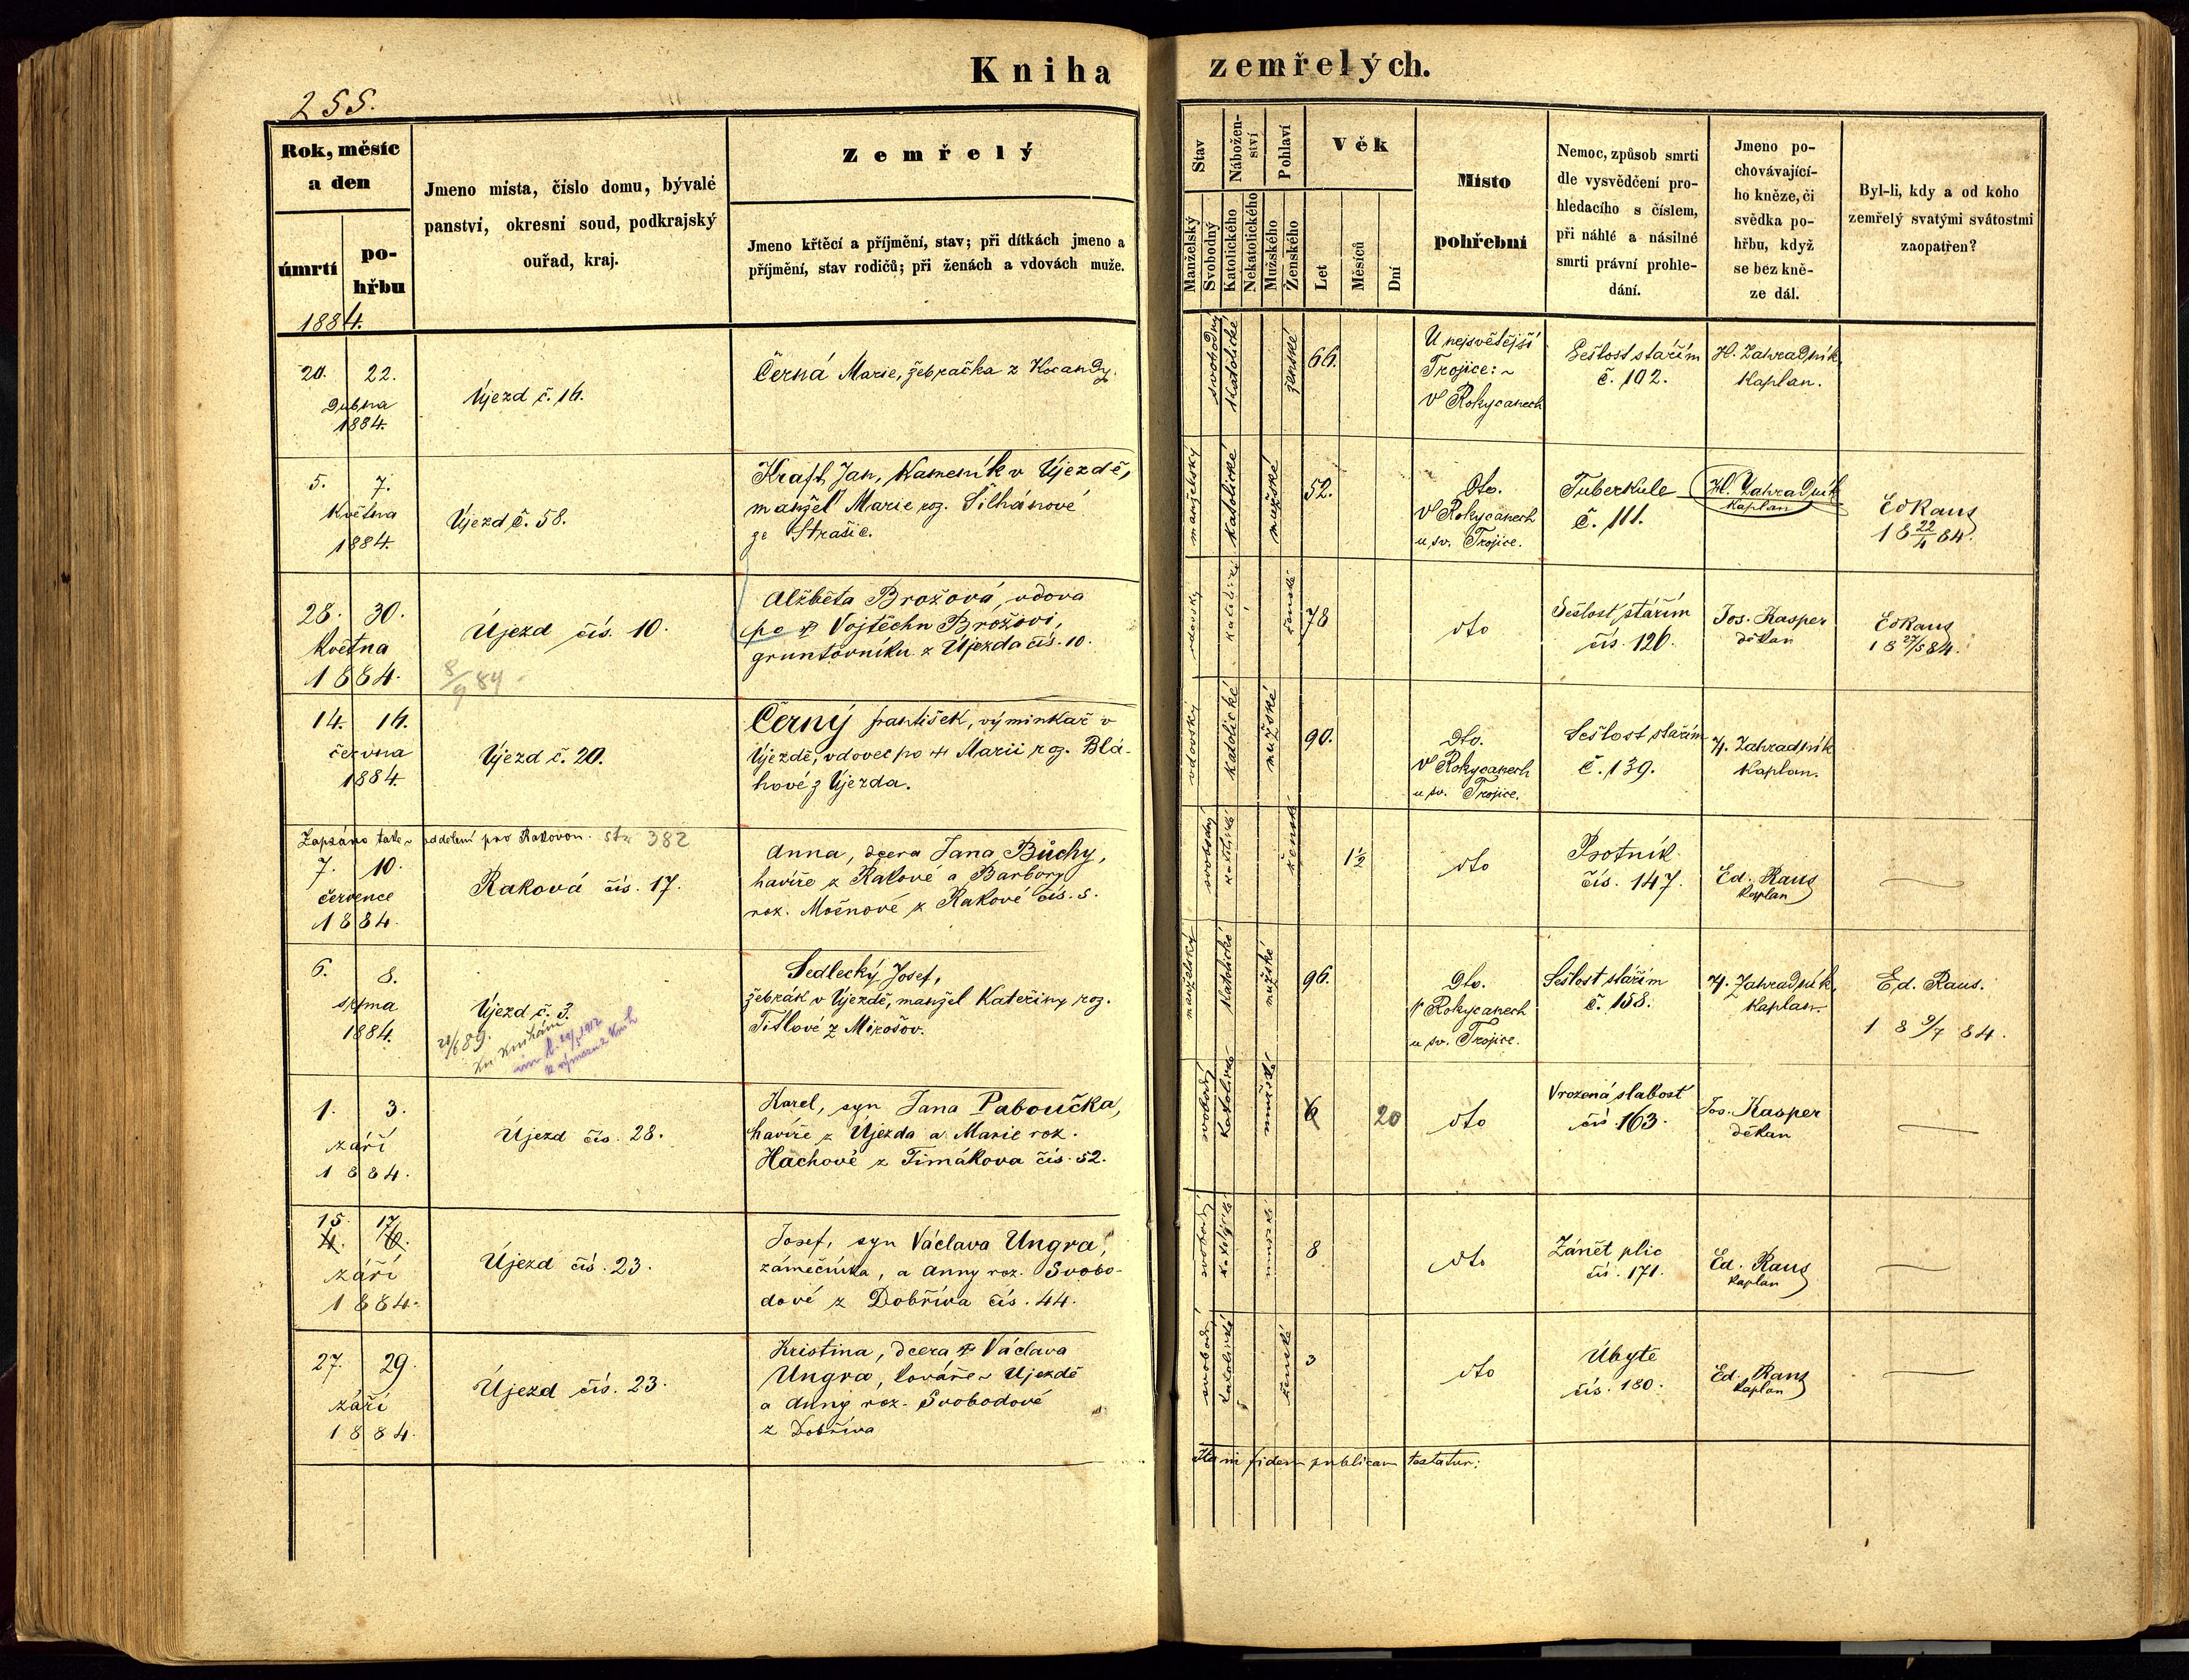 Kniha zemřelých.
255.
Rok, měsíc
a den
úmrtí
po-
hřbu
Jmeno místa, číslo domu, bývalé
panství, okresní soud, podkrajský
ouřad, kraj.
Zemřelý
Jmeno křtěcí a příjmění, stav; při dítkách jmeno a
příjmění, stav rodičů; při ženách a vdovách muže.
Stav
Manželský
Svobodný
Nábožen-
ství
Katolického
Nekatolického
Pohlaví
Mužského
Ženského
Věk
Let
Měsíců
Dní
Místo
pohřební
Nemoc, způsob smrti
dle vysvědčení pro-
hledacího s číslem,
při náhlé a násilné
smrti právní prohle-
dání.
Jmeno po-
chovávající-
ho kněze, či
svědka po-
hřbu, když
se bez kně-
ze dál.
Byl-li, kdy a od koho
zemřelý svatými svátostmi
zaopatřen?
1884.
20. 22.
Dubna
1884.
Újezd č. 16.
Černá Marie, žebračka z Kocandy.
svobodný
katolické
ženské
66.
U nejsvětější
Trojice:~
v Rokycanech
Sešlost stářím
č. 102.
H. Zahradník,
Kaplan.
5. 7.
Května
1884.
Újezd č. 58.
Kraft Jan, Kameník v Újezdě,
manžel Marie roz. Šilhánové
ze Strašic.
manželský
katolické
mužské
52.
Dto.
v Rokycanech
u sv. Trojice.
Tuberkule
č. 111.
H. Zahradník
Kaplan
Ed Raus
18 22/4 84.
28. 30.
Května
1884.
Újezd čís. 10.
8/9 84
Alžběta Brožová, vdova
po † Vojtěchu Brožovi,
gruntovníku z Újezda čís. 10.
vdovský
katolické
ženské
78
dto
Sešlost stářím
čís. 126.
Jos. Kasper
děkan
Ed Raus
18 27/5 84.
14. 16.
června
1884.
Újezd č. 20.
Černý František, výminkář v
Újezdě, vdovec po † Marii roz. Blá-
hové z Újezda.
vdovský
katolické
mužské
90.
Dto.
v Rokycanech
u sv. Trojice.
Sešlost stářím
č. 139.
H. Zahradník
Kaplan.
Zapsáno také v oddělení pro Rakovou. str 382
7. 10.
července
1884.
Raková čís. 17.
Anna, dcera Jana Bůchy,
havíře z Rakové a Barbory
roz. Močnové z Rakové čís. 5.
svobodný
katolické
ženské
1½
dto
Psotník
čís. 147.
Ed. Raus
Kaplan
6. 8.
srpna
1884.
Újezd č. 3.
Sedlecký Josef,
žebrák v Újezdě, manžel Kateřiny roz.
Titlové z Mirošov.
manželský
katolické
mužské
96.
Dto.
v Rokycanech
u sv. Trojice.
Sešlost stářím
č. 158.
H. Zahradník,
Kaplan.
Ed. Raus.
18 9/7 84.
1. 3.
září
1884.
Újezd čís. 28.
Karel, syn Jana Paboučka,
havíře z Újezda a Marie roz.
Hachové z Timákova čís. 52.
svobodný
katolické
mužské
6
20
dto
Vrozená slabost
čís. 163.
Jos. Kasper
děkan
15 17
4. 6.
září
1884.
Újezd čís. 23.
Josef, syn Václava Ungra,
zámečníka, a Anny roz. Svobo-
dové z Dobříva čís. 44.
svobodný
katolické
mužské
8
dto
Zánět plic
čís. 171.
Ed. Raus
Kaplan
27. 29.
září
1884.
Újezd čís. 23.
Kristina, dcera † Václava
Ungra, kováře v Újezdě
a Anny roz. Svobodové
z Dobříva
svobodný
katolické
ženské
3
dto
Úbytě
čís. 180.
Ed. Raus
Kaplan
Ita in fidem publicam testatur: